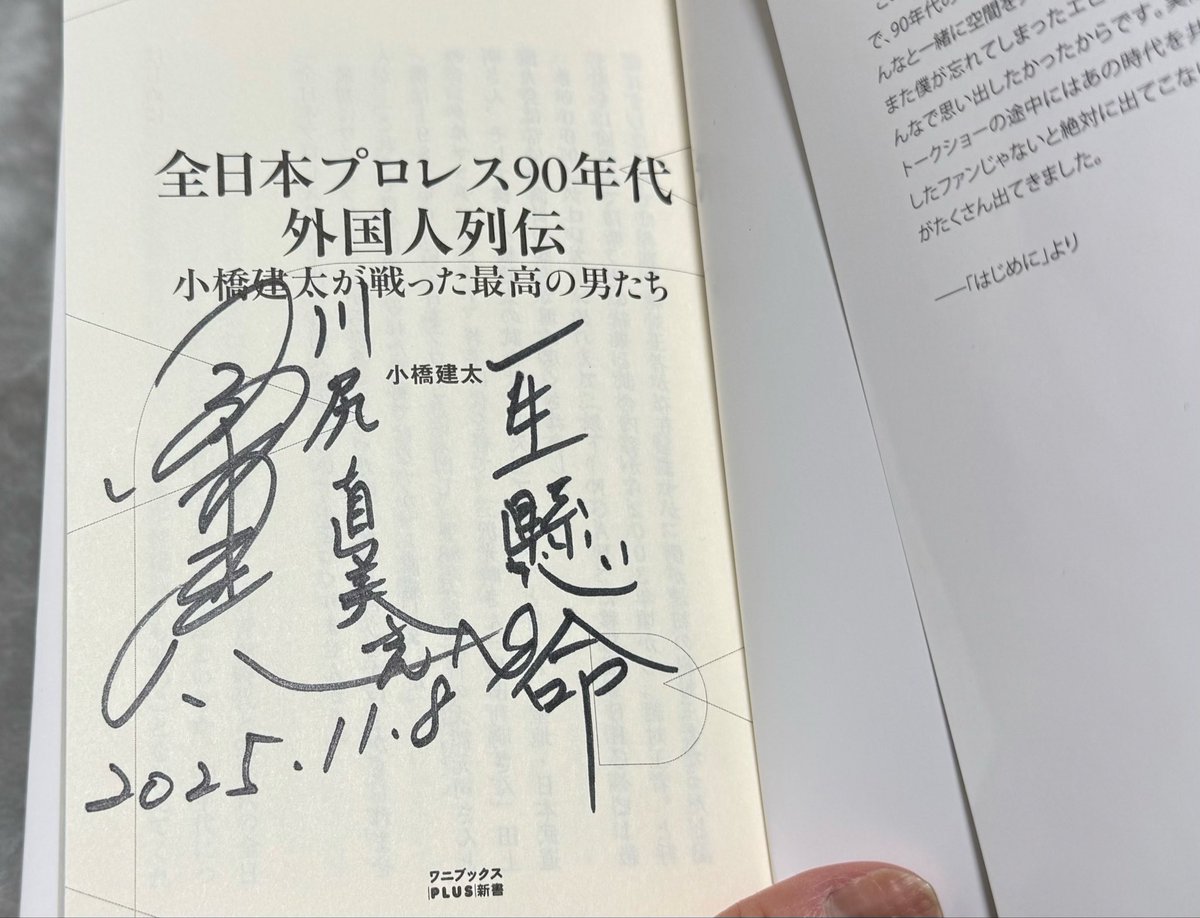 全日本プロレス90年代
外国人列伝
小橋建太が戦った最高の男たち
小橋建太
一生懸命
川尻直美
2025.11.8
ワニブックス
PLUS新書
で、90年代の
んなと一緒に空間を
また僕が忘れてしまったエピ
んなで思い出したかったからです。実
トークショーの途中にはあの時代を共
したファンじゃないと絶対に出てこない
がたくさん出てきました。
──「はじめに」より